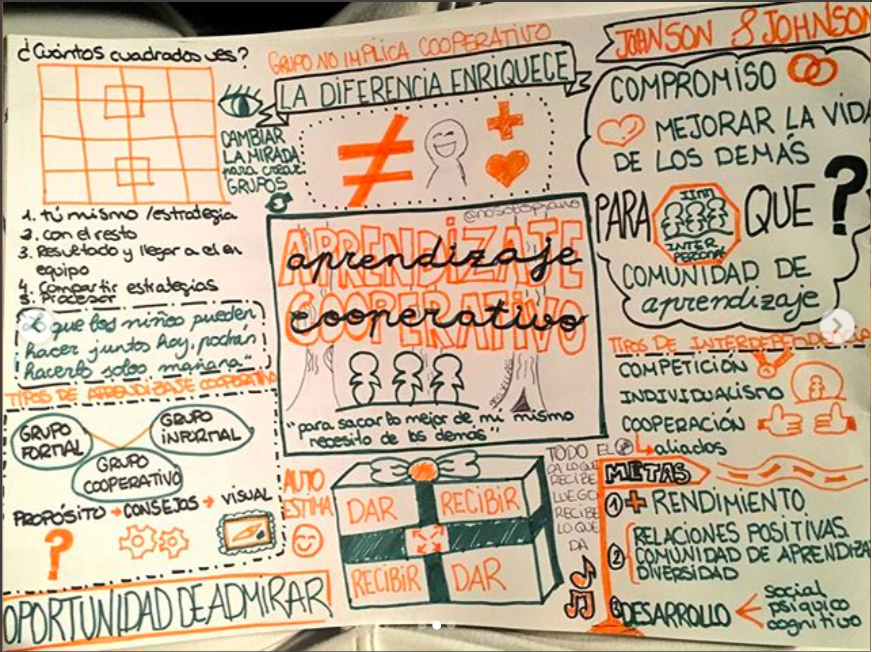 ¿Cuántos cuadrados ves?
CAMBIAR
LA MIRADA
para crear
GRUPOS
1. tú mismo /estrategia
2. con el resto
3. Resultado y llegar a el en
equipo
4. Compartir estrategias
5. Procesar
"Lo que los niños pueden
hacer juntos hoy, podrán
hacerlo solos mañana"
TIPOS DE APRENDIZAJE COOPERATIVO
GRUPO
FORMAL
GRUPO
INFORMAL
GRUPO
COOPERATIVO
PROPÓSITO → CONSEJOS → VISUAL
?
OPORTUNIDAD DE ADMIRAR
GRUPO NO IMPLICA COOPERATIVO
LA DIFERENCIA ENRIQUECE
≠ +
APRENDIZAJE
aprendizaje
COOPERATIVO
cooperativo
"para sacar lo mejor de mi mismo
necesito de los demás"
AUTO
ESTIMA
DAR
RECIBIR
RECIBIR
DAR
TODO EL
DA LO QUE
RECIBE
LUEGO
RECIBE
LO QUE
DA
JOHNSON & JOHNSON
COMPROMISO
MEJORAR LA VIDA
DE LOS DEMÁS
PARA QUE ?
INTER
PERSONAL
COMUNIDAD DE
aprendizaje
TIPOS DE INTERDEPENDENCIA
COMPETICIÓN
INDIVIDUALISMO
COOPERACIÓN
aliados
METAS
1 + RENDIMIENTO
2 RELACIONES POSITIVAS
COMUNIDAD DE APRENDIZA
DIVERSIDAD
3 DESARROLLO
social
psíquico
cognitivo